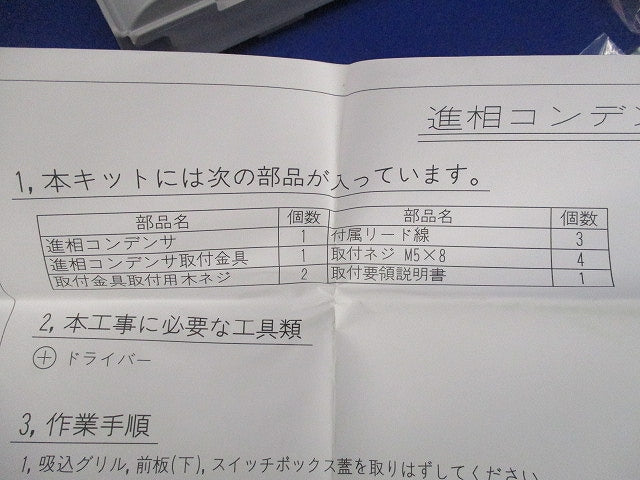 進相コンデン
1,本キットには次の部品が入っています。
部品名 個数 部品名 個数
進相コンデンサ 1 付属リード線 3
進相コンデンサ取付金具 1 取付ネジ M5×8 4
取付金具取付用木ネジ 2 取付要領説明書 1
2,本工事に必要な工具類
⊕ ドライバー
3,作業手順
1,吸込グリル,前板(下),スイッチボックス蓋を取りはずしてください